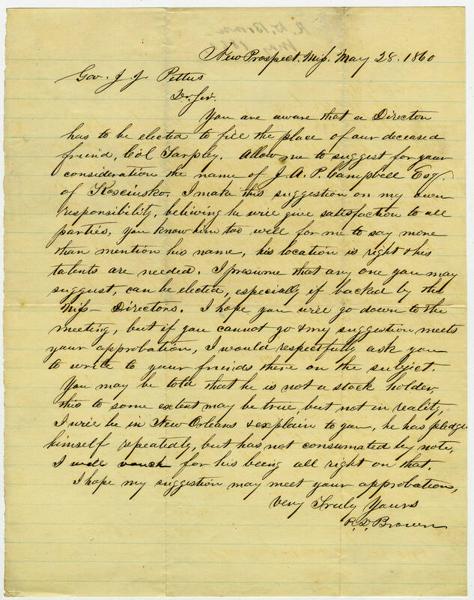 New Prospect, Miſs. May 28. 1860
Gov. J. J. Pettus
Dr. Sir.
You are aware that a Director
has to be elected to fill the place of our deceased
friend, Col Tarpley. Allow me to suggest for your
consideration the name of J. A. P. Campbell Esq.
of Kosciusko. I make this suggestion on my own
responsibility, believing he will give satisfaction to all
parties, you know him too well for me to say more
than mention his name, his location is right & his
talents are needed. I presume that any one you may
suggest, can be elected, especially if backed by the
Miſs Directors. I hope you will go down to the
meeting, but if you cannot go & my suggestion meets
your approbation, I would respectfully ask you
to write to your friends there on the subject.
You may be told that he is not a stock holder
this to some extent may be true but not in reality,
I will be in New Orleans & explain to you, he has pledged
himself repeatedly, but has not consumated by note,
I will vouch for his being all right on that.
I hope my suggestion may meet your approbation,
Very Truly Yours
R. D. Brown